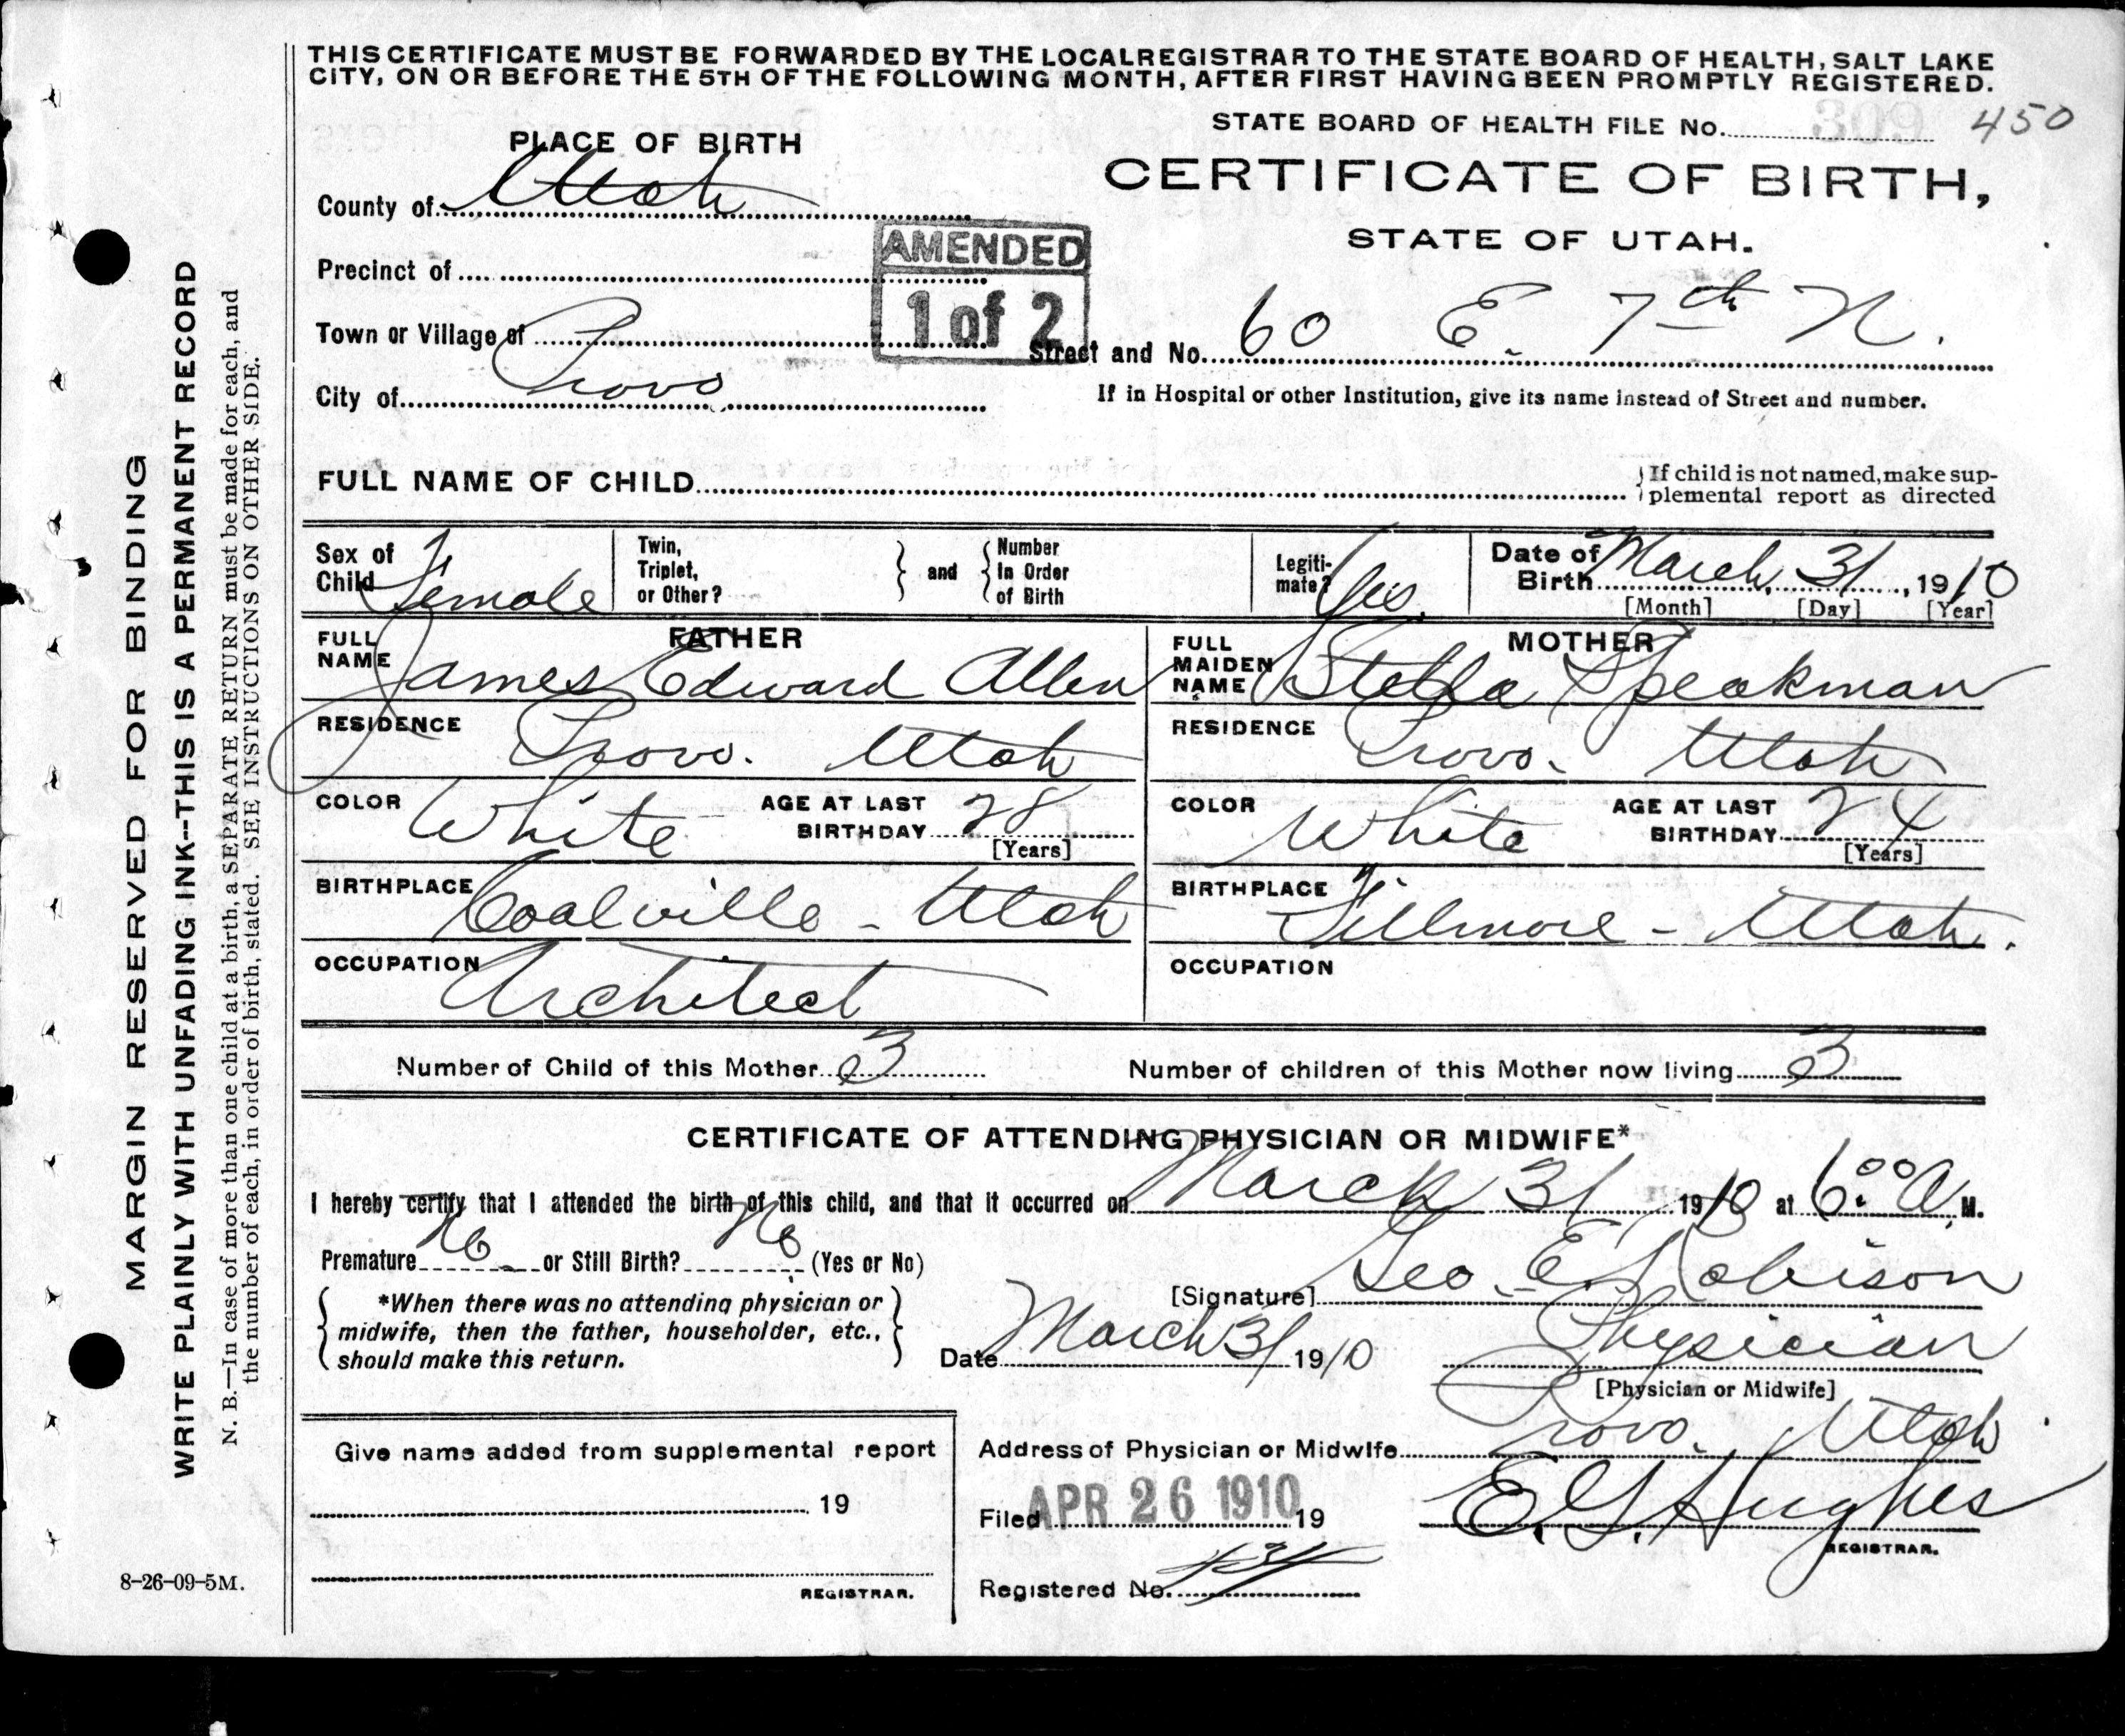 THIS CERTIFICATE MUST BE FORWARDED BY THE LOCAL REGISTRAR TO THE STATE BOARD OF HEALTH, SALT LAKE
CITY, ON OR BEFORE THE 5TH OF THE FOLLOWING MONTH, AFTER FIRST HAVING BEEN PROMPTLY REGISTERED.
STATE BOARD OF HEALTH FILE No. 450
PLACE OF BIRTH
CERTIFICATE OF BIRTH,
STATE OF UTAH.
County of Utah
AMENDED
1 of 2
Precinct of
Town or Village of
Street and No. 60 E. 7th N.
City of Provo
If in Hospital or other Institution, give its name instead of Street and number.
FULL NAME OF CHILD
If child is not named, make sup-
plemental report as directed
Sex of Child Female
Twin, Triplet, or Other?
and
Number In Order of Birth
Legiti-mate? Yes.
Date of Birth March 31, 1910
[Month] [Day] [Year]
FATHER
FULL NAME James Edward Allen
MOTHER
FULL MAIDEN NAME Stella Speakman
RESIDENCE Provo. Utah
RESIDENCE Provo. Utah
COLOR White
AGE AT LAST BIRTHDAY 28
[Years]
COLOR White
AGE AT LAST BIRTHDAY 24
[Years]
BIRTHPLACE Coalville - Utah
BIRTHPLACE Fillmore - Utah.
OCCUPATION Architect
OCCUPATION
Number of Child of this Mother 3
Number of children of this Mother now living 3
CERTIFICATE OF ATTENDING PHYSICIAN OR MIDWIFE*
I hereby certify that I attended the birth of this child, and that it occurred on March 31 1910 at 6:00 A. M.
Premature No or Still Birth? No (Yes or No)
[Signature] Geo. E. Robison
*When there was no attending physician or
midwife, then the father, householder, etc.,
should make this return.
Date March 31 1910
Physician
[Physician or Midwife]
Give name added from supplemental report
19
REGISTRAR.
Address of Physician or Midwife Provo, Utah
Filed APR 26 1910 19
E. G. Hughes
REGISTRAR.
Registered No.
MARGIN RESERVED FOR BINDING
WRITE PLAINLY WITH UNFADING INK--THIS IS A PERMANENT RECORD
N. B.—In case of more than one child at a birth, a SEPARATE RETURN must be made for each, and
the number of each, in order of birth, stated. SEE INSTRUCTIONS ON OTHER SIDE.
8-26-09-5M.